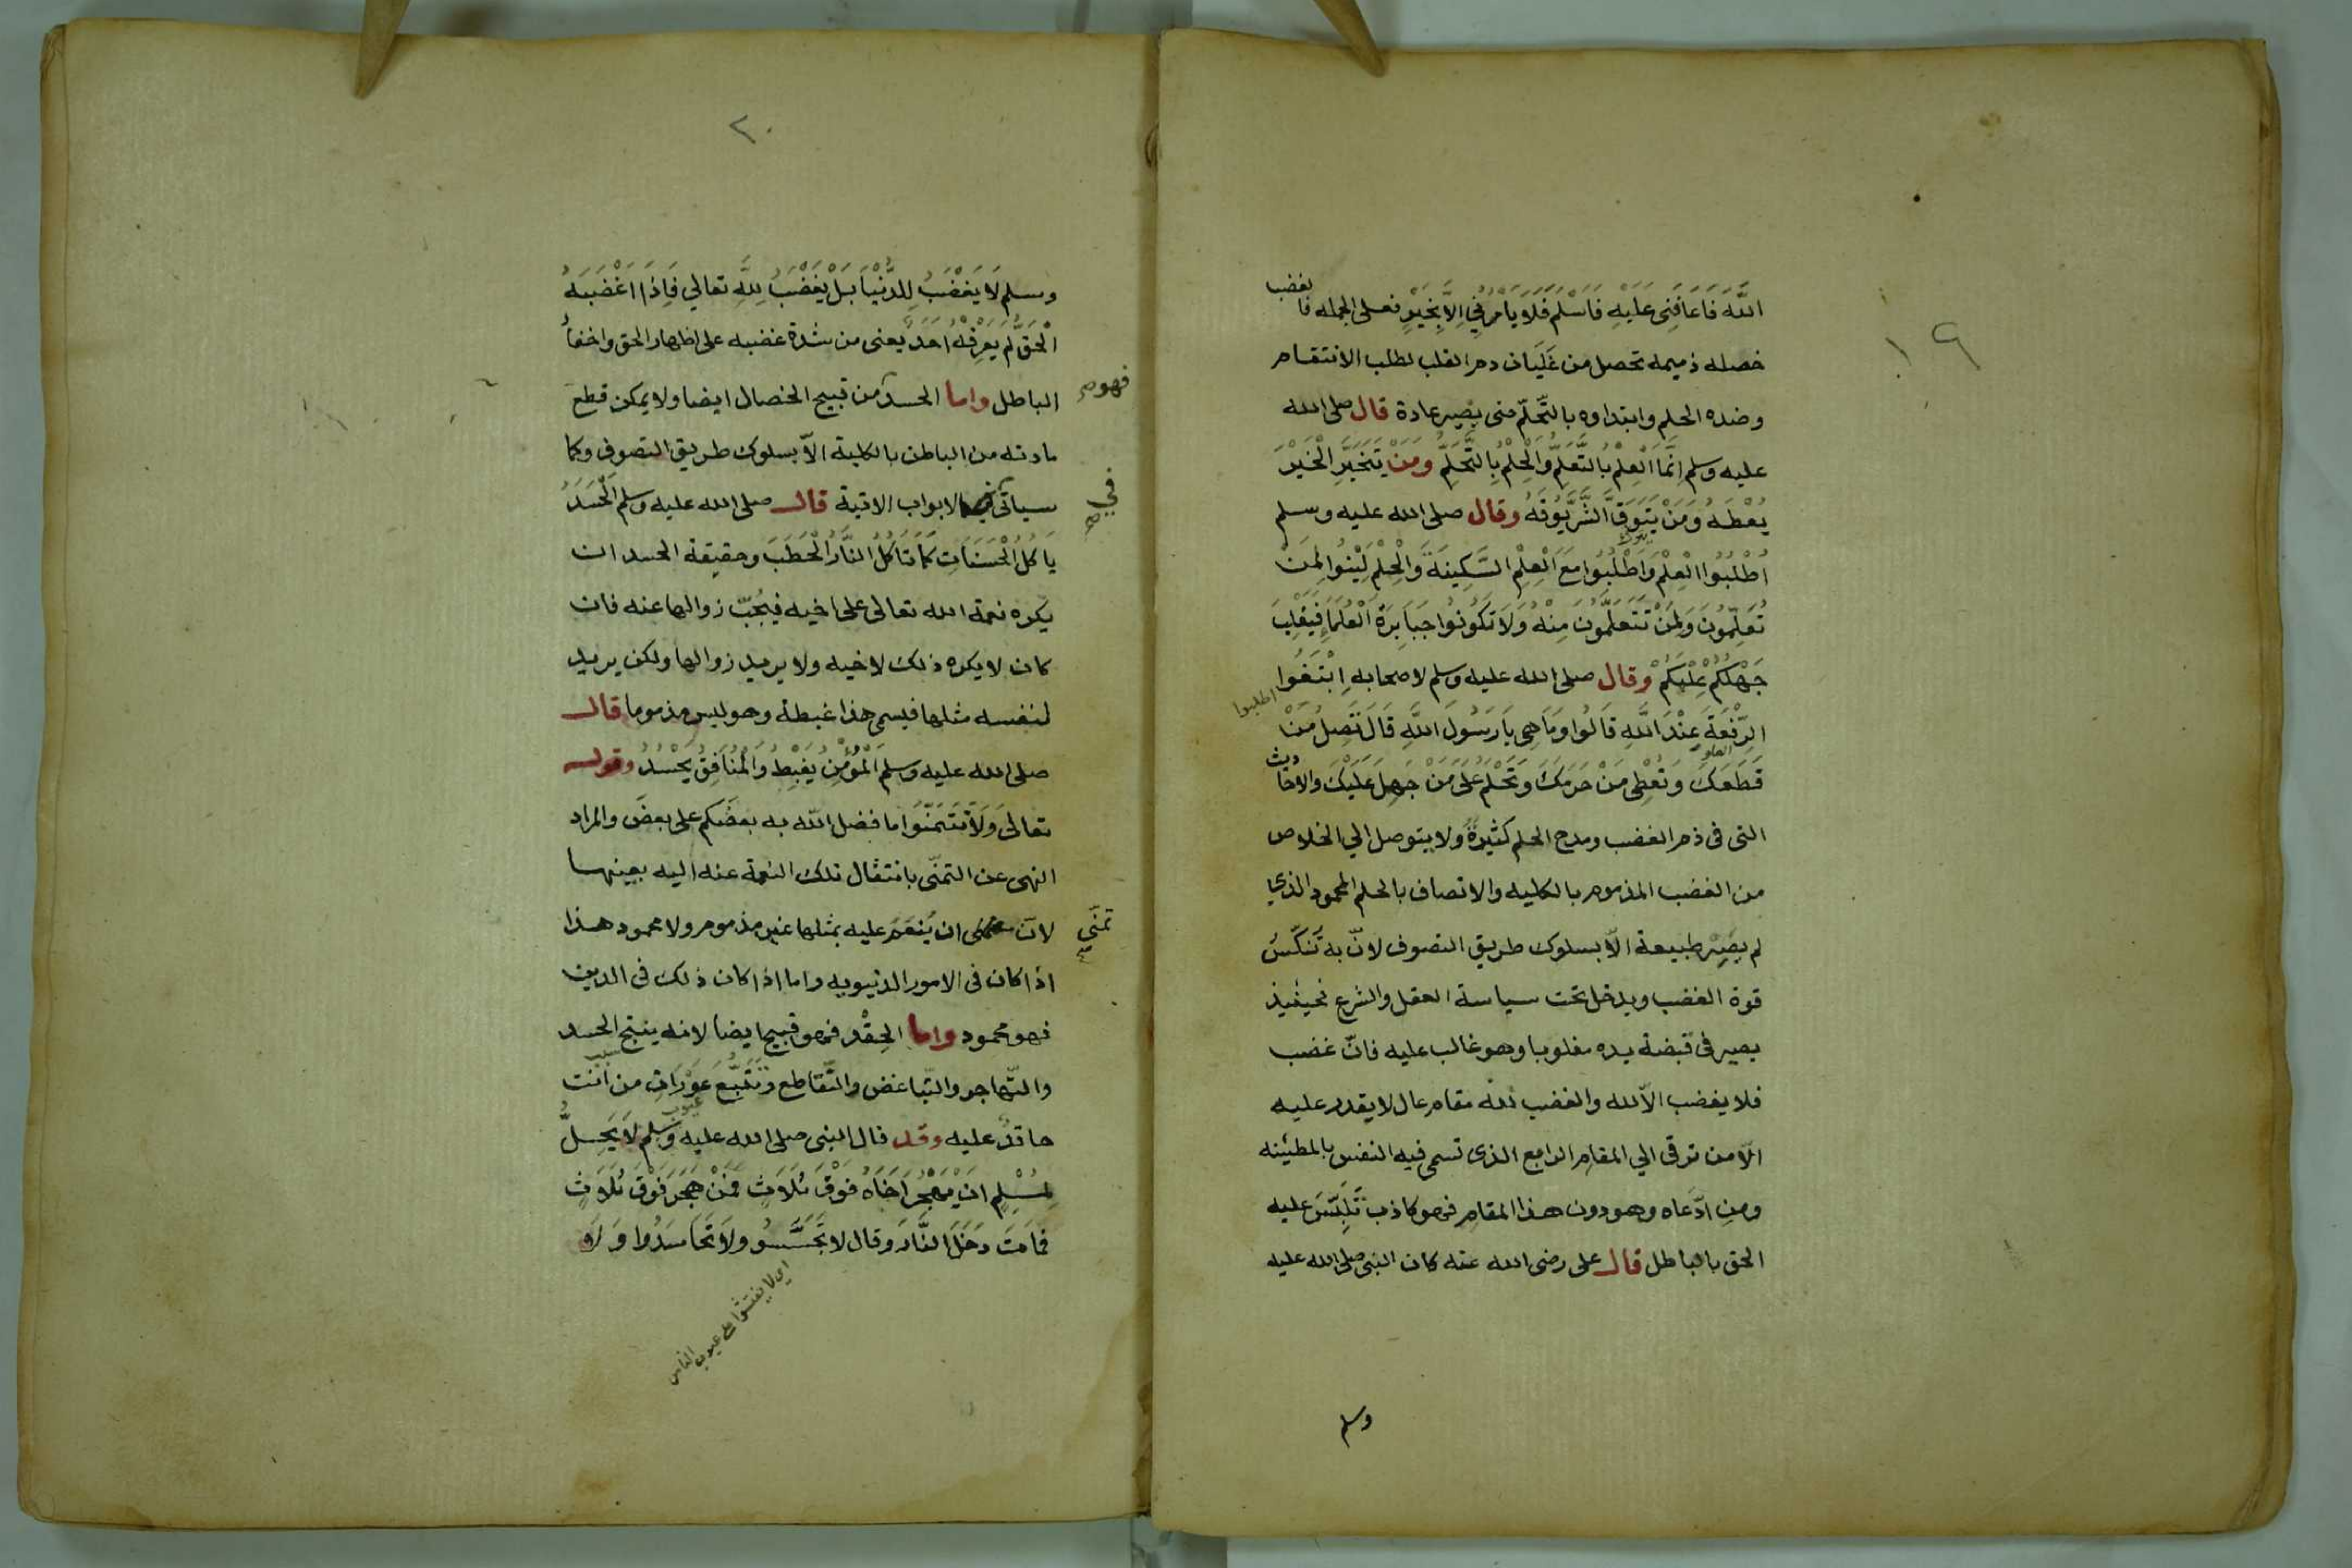 ١٩
الله فَاعَانَنِى عَلَيْهِ فَاَسْلَمَ فَلَا يَامُرُنِي اِلَّا بِخَيْرٍ فعلى الجمله فالغضب
خصله ذميمه تحصل من غَلَيَان دم القلب لطلب الانتقام
وضده الحلم وابتداوه بالتّحَلّم حتى يصير عادة قال صلى الله
عليه وسلم اِنَّمَا الْعِلْمُ بِالتَّعَلُّمِ وَالْحِلْمُ بِالتَّحَلُّمِ وَمَنْ يَتَخَيَّرِ الْخَيْرَ
يُعْطَهُ وَمَنْ يَتَوَقَّ الشَّرَّ يُوقَهُ وقال صلى الله عليه وسلم
اُطْلُبُوا الْعِلْمَ وَاطْلُبُوا مَعَ الْعِلْمِ السَّكِينَةَ وَالْحِلْمَ لِيْنُوا لِمَنْ
تُعَلِّمُونَ وَلِمَنْ تَتَعَلَّمُونَ مِنْهُ وَلَا تَكُونُوا جَبَابِرَةَ الْعُلَمَاءِ فَيَغْلِبَ
جَهْلُكُمْ عِلْمَكُمْ وقال صلى الله عليه وسلم لاصحابه اِبْتَغُوا
اطلبوا
الرِّفْعَةَ عِنْدَ اللَّهِ قَالُوا وَمَا هِى يَا رَسُولَ اللَّهِ قَالَ تَصِلُ مَنْ
قَطَعَكَ وَتُعْطِى مَنْ حَرَمَكَ وَتَحْلُمُ عَلَى مَنْ جَهِلَ عَلَيْكَ والاحاديث
التى فى ذم الغضب ومدح الحلم كثيرةٌ ولا يتوصل الي الخلاص
من الغضب المذموم بالكليه والاتصاف بالحلم المحمود الذي
لم يصِيْر طبيعة الّا بسلوك طريق التصوف لانّ به تَنكَسُ
قوة الغضب ويدخل تحت سياسة العقل والشرع فحينيذ
يصير فى قبضة يده مغلوبا وهو غالب عليه فانّ غضب
فلا يغضب الّا لله والغضب لله مقام عال لا يقدر عليه
الّا من ترقى الي المقام الرابع الذى تسمى فيه النفس بالمطئينه
ومن ادّعاه وهو دون هذا المقام فهو كاذب تَلَبَّسَ عليه
الحق بالباطل قال على رضى الله عنه كان النبى صلى الله عليه
وسلم
٢٠
وسلم لَا يَغْضَبُ لِلدُّنْيَا بَلْ يَغْضَبُ لِلَّهِ تعالي فَاِذَا اَغْضَبَهُ
الْحَقُّ لَمْ يَعْرِفْهُ اَحَدٌ يعنى من شدة غضبه على اظهار الحق واخفاء
الباطل واما الحسد من قبيح الخصال ايضا ولا يمكن قطع
فهو صح
مادته من الباطن بالكلية الّا بسلوك طريق التصوف وكما
سياتى الابواب الاتية قال صلى الله عليه وسلم اَلْحَسَدُ
في صح
يَاكُلُ الْحَسَنَاتِ كَمَا تَاكُلُ النَّارُ الْحَطَبَ وحقيقة الحسد ان
يكره نعمة الله تعالى على اخيه فيُحِبّ زوالها عنه فان
كان لا يكره ذلك لاخيه ولا يريد زوالها ولكن يريد
لنفسه مثلها فيسمى هذا غبطة وهو ليس مذموما قال
صلى الله عليه وسلم اَلْمُؤْمِنُ يَغْبِطُ وَالْمُنَافِقُ يَحْسُدُ وقوله
تعالى وَلَا تَتَمَنَّوْا ما فضل الله به بعضكم على بعض والمراد
النهى عن التمنّى بانتقال تلك النعمة عنه اليه بعينها
لانّ ان يُنعَمَ عليه بمثلها غير مذموم ولا محمود هذا
تمنّي صح
اذا كان فى الامور الدنيويه واما اذا كان ذلك فى الدين
فهو محمود واما الحِقْد فهو قبيح ايضا لانه ينتج الحسد
والتّهاجر والتّباغض والتّقاطع وتَتَبُّعَ عَوْرَاتِ من انت
عيوب
حاقدٌ عليه وقد قال النبى صلى الله عليه وسلم لَا يَحِلُّ
لِمُسْلِمٍ اَنْ يَهْجُرَ اَخَاهُ فَوْقَ ثَلَاثٍ فَمَنْ هَجَرَ فَوْقَ ثَلَاثٍ
فَمَاتَ دَخَلَ النَّارَ وقال لا تَجَسَّسُو ولَا تَحَاسَدُوا وَلَا
اي لا يفتشوا على عيوب الناس